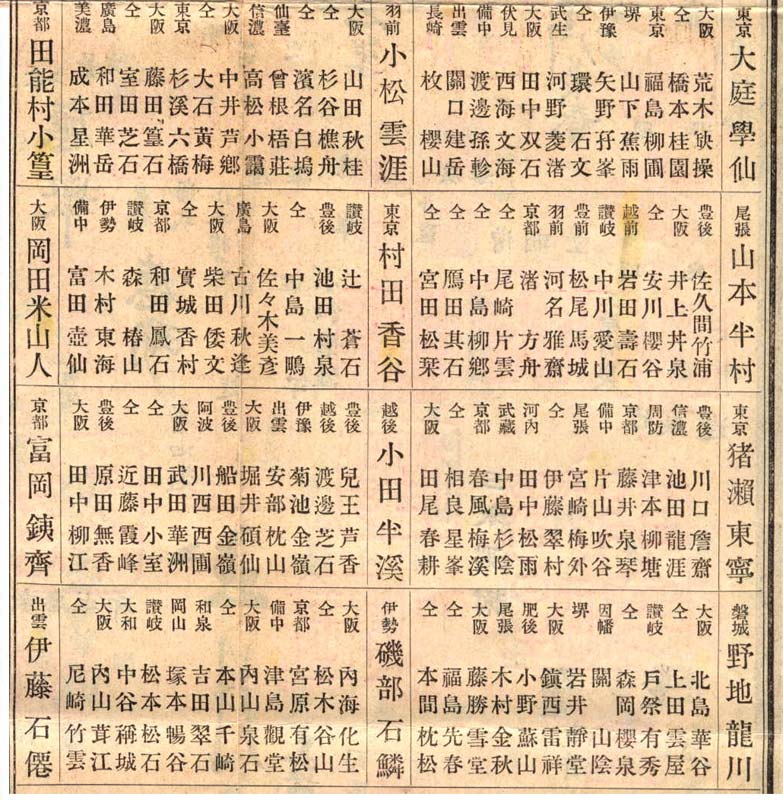 東京 大庭學仙
大阪 荒木 操
仝 橋本桂園
東京 福島柳圃
堺 山下蕉雨
伊豫 矢野孖峯
仝 環 石文
武生 河野菱渚
大阪 田中双石
伏見 西海文海
備中 渡邊孫
出雲 關口建岳
長崎 枚 櫻山
羽前 小松雲涯
大阪 山田秋桂
仝 杉谷樵舟
仝 濱名白塢
仙臺 曾根梧莊
信濃 高松小靄
大阪 中井芦鄉
仝 大石黄梅
東京 杉溪六橋
大阪 藤田篁石
仝 室田芝石
廣島 和田華岳
美濃 成本星洲
京都 田能村小篁
尾張 山本半村
豊後 佐久間竹浦
大阪 井上丼泉
仝 安川櫻谷
越前 岩田壽石
讃岐 中川愛山
豊前 松尾馬城
羽前 河名雅齋
京都 渚 方舟
仝 尾崎片雲
仝 中島柳鄉
仝 鴈田其石
仝 宮田松栞
東京 村田香谷
讃岐 辻 蒼石
豊後 池田村泉
仝 中島一鴫
大阪 佐々木美彥
廣島 古川秋逢
大阪 柴田倭文
仝 實城香村
京都 和田鳳石
讃岐 森 椿山
伊勢 木村東海
備中 富田壺仙
大阪 岡田米山人
東京 猪瀨東寧
豊後 川口詹齋
信濃 池田龍涯
周防 津本柳塘
京都 藤井泉琴
備中 片山吹谷
尾張 宮崎梅外
仝 伊藤翠村
河內 田中松雨
武藏 中島杉陰
京都 春風梅溪
仝 相良星峯
大阪 田尾春耕
越後 小田半溪
豊後 兒王芦香
越後 渡邊芝石
伊豫 菊池金嶺
出雲 安部枕山
大阪 堀井碩仙
豊後 船田金嶺
阿波 川西西圃
大阪 武田華洲
仝 田中小室
仝 近藤霞峰
豊後 原田無香
大阪 田中柳江
京都 富岡銕齊
磐城 野地龍川
大阪 北島華谷
仝 上田雲屋
讃岐 戸祭有秀
仝 森岡櫻泉
因幡 關 山陰
堺 岩井靜堂
大阪 鎮西雷祥
肥後 小野蘇山
尾張 木村金秋
大阪 藤勝雪堂
仝 福島先春
仝 本間枕松
伊勢 磯部石鱗
大阪 內海化生
仝 松木谷山
京都 宮原有松
備中 津島觀堂
大阪 內山泉石
仝 本山千崎
和泉 吉田翠石
岡山 塚本暢谷
讃岐 松本松石
大和 中谷稱城
大阪 內山茸江
仝 尼崎竹雲
出雲 伊藤石僊